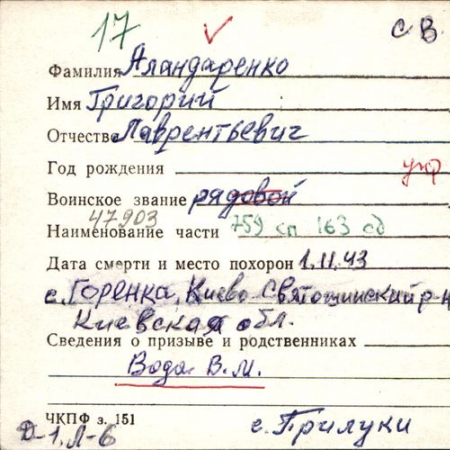 17 ✓ СВ
Фамилия Аландаренко
Имя Григорий
Отчество Лаврентьевич
Год рождения
Воинское звание рядовой
47903
Наименование части 759 сп 163 сд
Дата смерти и место похорон 1.11.43
с. Горенка, Киево-Святошинский р-н
Киевская обл.
Сведения о призыве и родственниках
Вода В.М.
ЧКПФ з. 151
с. Прилуки
Д-1. Л-6